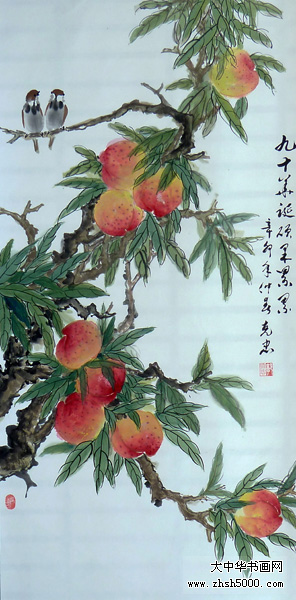 九十华诞硕果累累
辛卯年仲春克忠
大中华书画网
www.zhsh5000.com